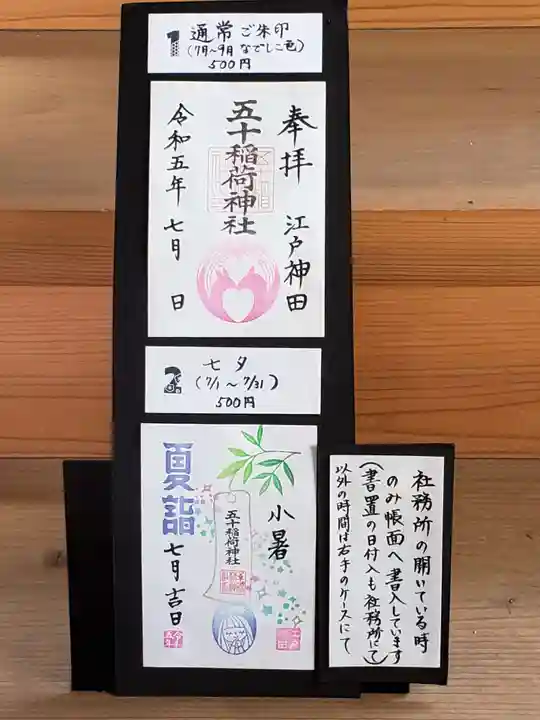 1 通常ご朱印
(7月~9月 なでしこ色)
500円
奉拝 江戸神田
五十稲荷神社
令和五年 七月 日
2 七夕
(7/1~7/31)
500円
小暑
五十稲荷神社
夏詣
七月吉日
江戸
神田
社務所の開いている時
のみ帳面へ書入しています
(書置の日付入も社務所にて)
以外の時間は右手のケースにて